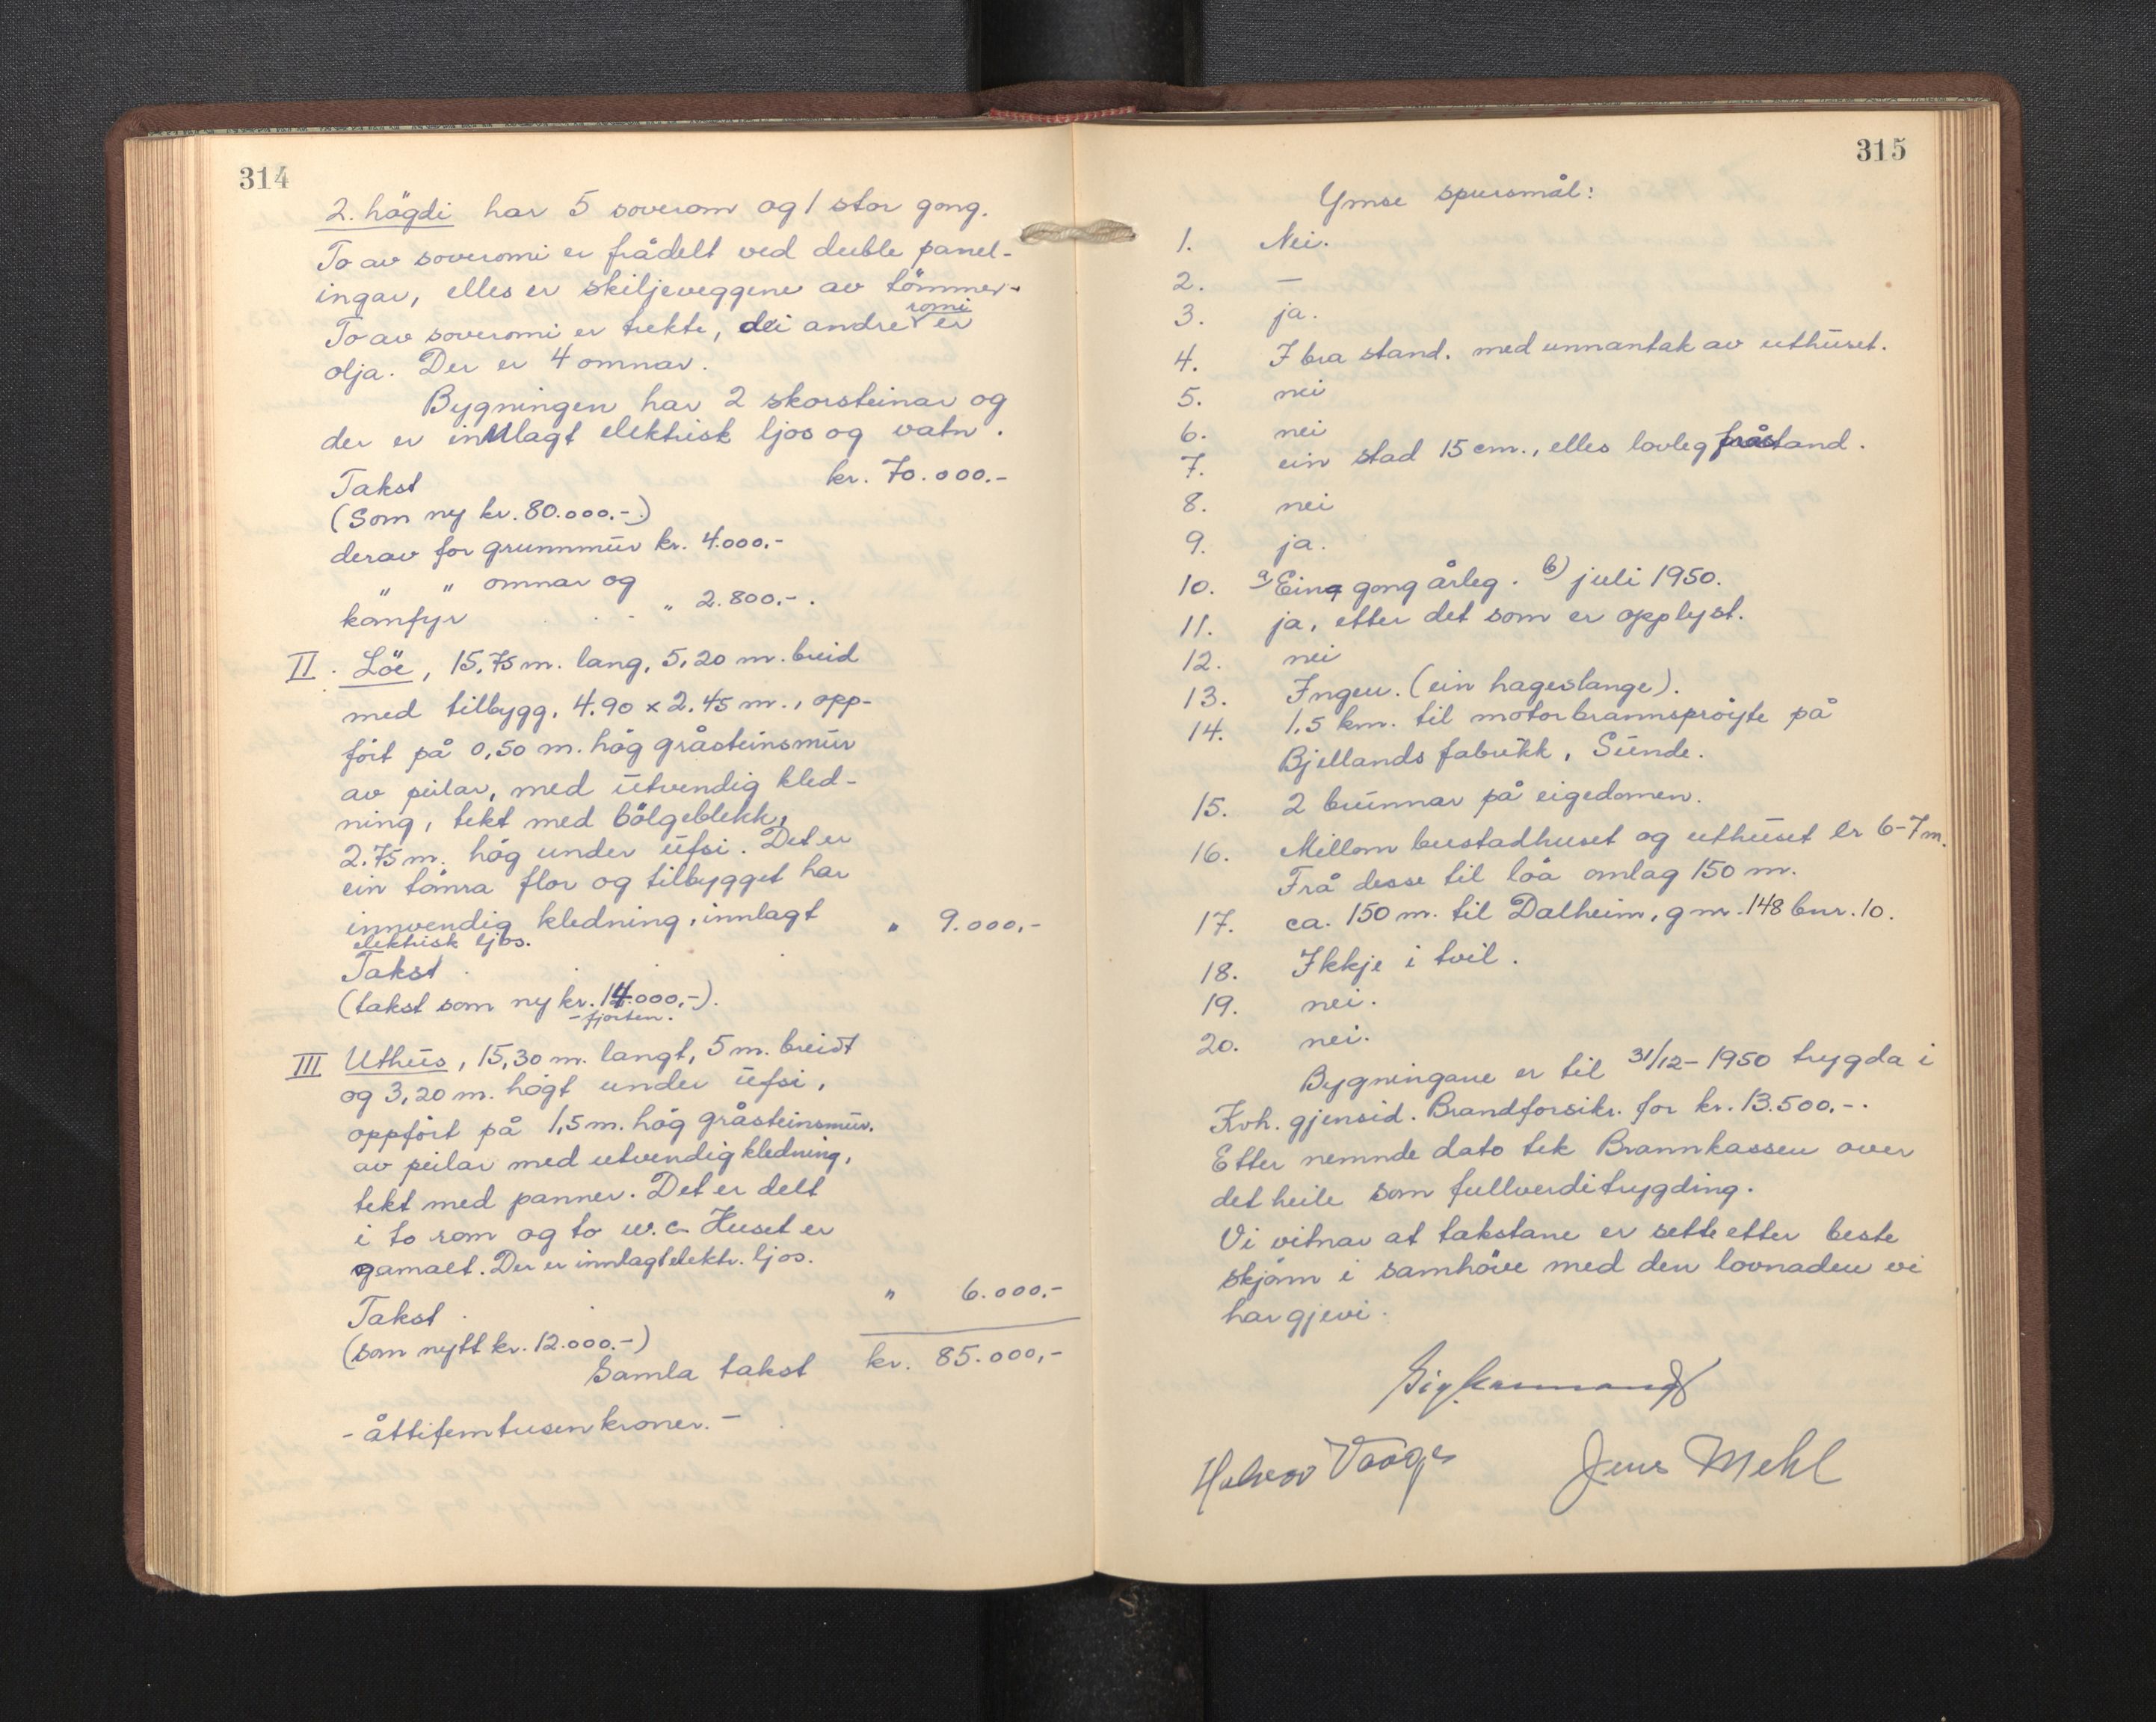 314
2. högdi har 5 soverom og 1 stor gong.
To av soveromi er frådelt ved duble panel-
ingar, elles er skiljeveggene av tömmer.
To av soveromi er trekte, dei andre romi er
olja. Der er 4 omnar.
Bygningen har 2 skorsteinar og
der er innlagt elektrisk ljos og vatn.
Takst kr. 70.000.-
(Som ny kr. 80.000.-)
derav for grunnmur kr. 4.000.-
" " omnar og
komfyr . . - " 2.800.-.
II. Löe, 15,75 m. lang, 5,20 m. breid
med tilbygg, 4.90 x 2.45 m., opp-
fört på 0,50 m. hög gråsteinsmur
av peilar, med utvendig kled-
ning, tekt med bölgeblekk,
2.75 m. hög under ufsi. Det er
ein tömra flor og tilbygget har
innvendig kledning, innlagt
elektrisk ljos. " 9.000,-
Takst .
(takst som ny kr. 14.000,-).
- fjorten.
III Uthus, 15,30 m. langt, 5 m. breidt
og 3,20 m. högt under ufsi,
oppfört på 1,5 m. hög gråsteinsmur.
av peilar med utvendig kledning,
tekt med panner. Det er delt
i to rom og to w.c. Huset er
gamalt. Der er innlagt elektr. ljos.
Takst . " 6.000.-
(som nytt kr. 12.000.-)
Samla takst kr. 85.000,-
- åttifemtusen kroner. -
315
Ymse spursmål:
1. Nei.
2. —
3. ja.
4. I bra stand. med unnantak av uthuset.
5. nei
6. nei
7. ein stad 15 cm., elles lovleg fråstand.
8. nei
9. ja.
10. a) Ein gong årleg. b) juli 1950.
11. ja, etter det som er opplyst.
12. nei
13. Ingen. (ein hageslange).
14. 1,5 km. til motorbrannspröyte på
Bjellands fabrikk, Sunde.
15. 2 brunnar på eigedomen.
16. Millom bustadhuset og uthuset er 6-7 m.
Frå desse til löa omlag 150 m.
17. ca. 150 m. til Dalheim, gnr. 148 bnr. 10.
18. Ikkje i tvil.
19. nei.
20. nei.
Bygningane er til 31/12-1950 trygda i
Kvh. gjensid. Brandforsikr. for kr. 13.500.-.
Etter nemnde dato tek Brannkassen over
det heile som fullverditrygding.
Vi vitnar at takstane er sette etter beste
skjöm i samhöve med den lovnaden vi
har gjevi.
Halvor Vaage Jens Mehl